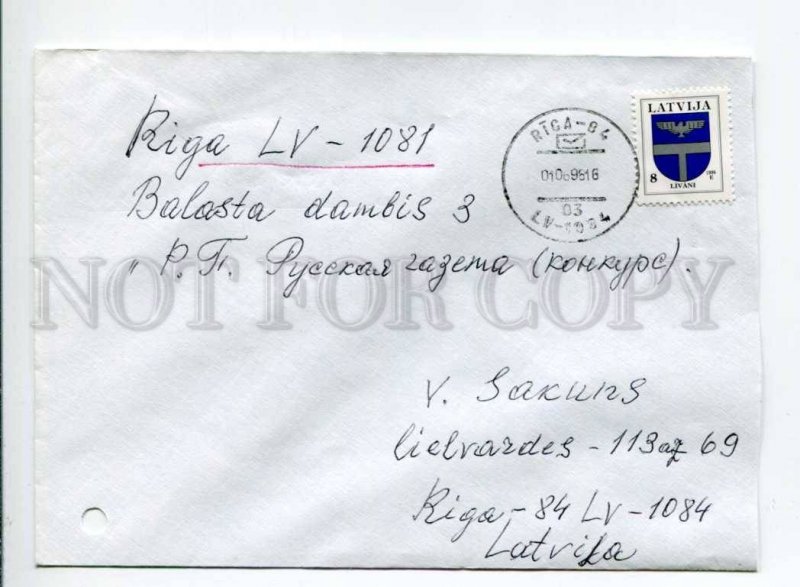 Riga LV - 1081
Balasta dambis 3
„ Р. П. Русская газета (конкурс).
RĪGA-84
03
LV-1084
LATVIJA
8
LĪVĀNI
V. Sakuns
lielvardes - 113 69
Riga - 84 LV-1084
Latvija
NOT FOR COPY